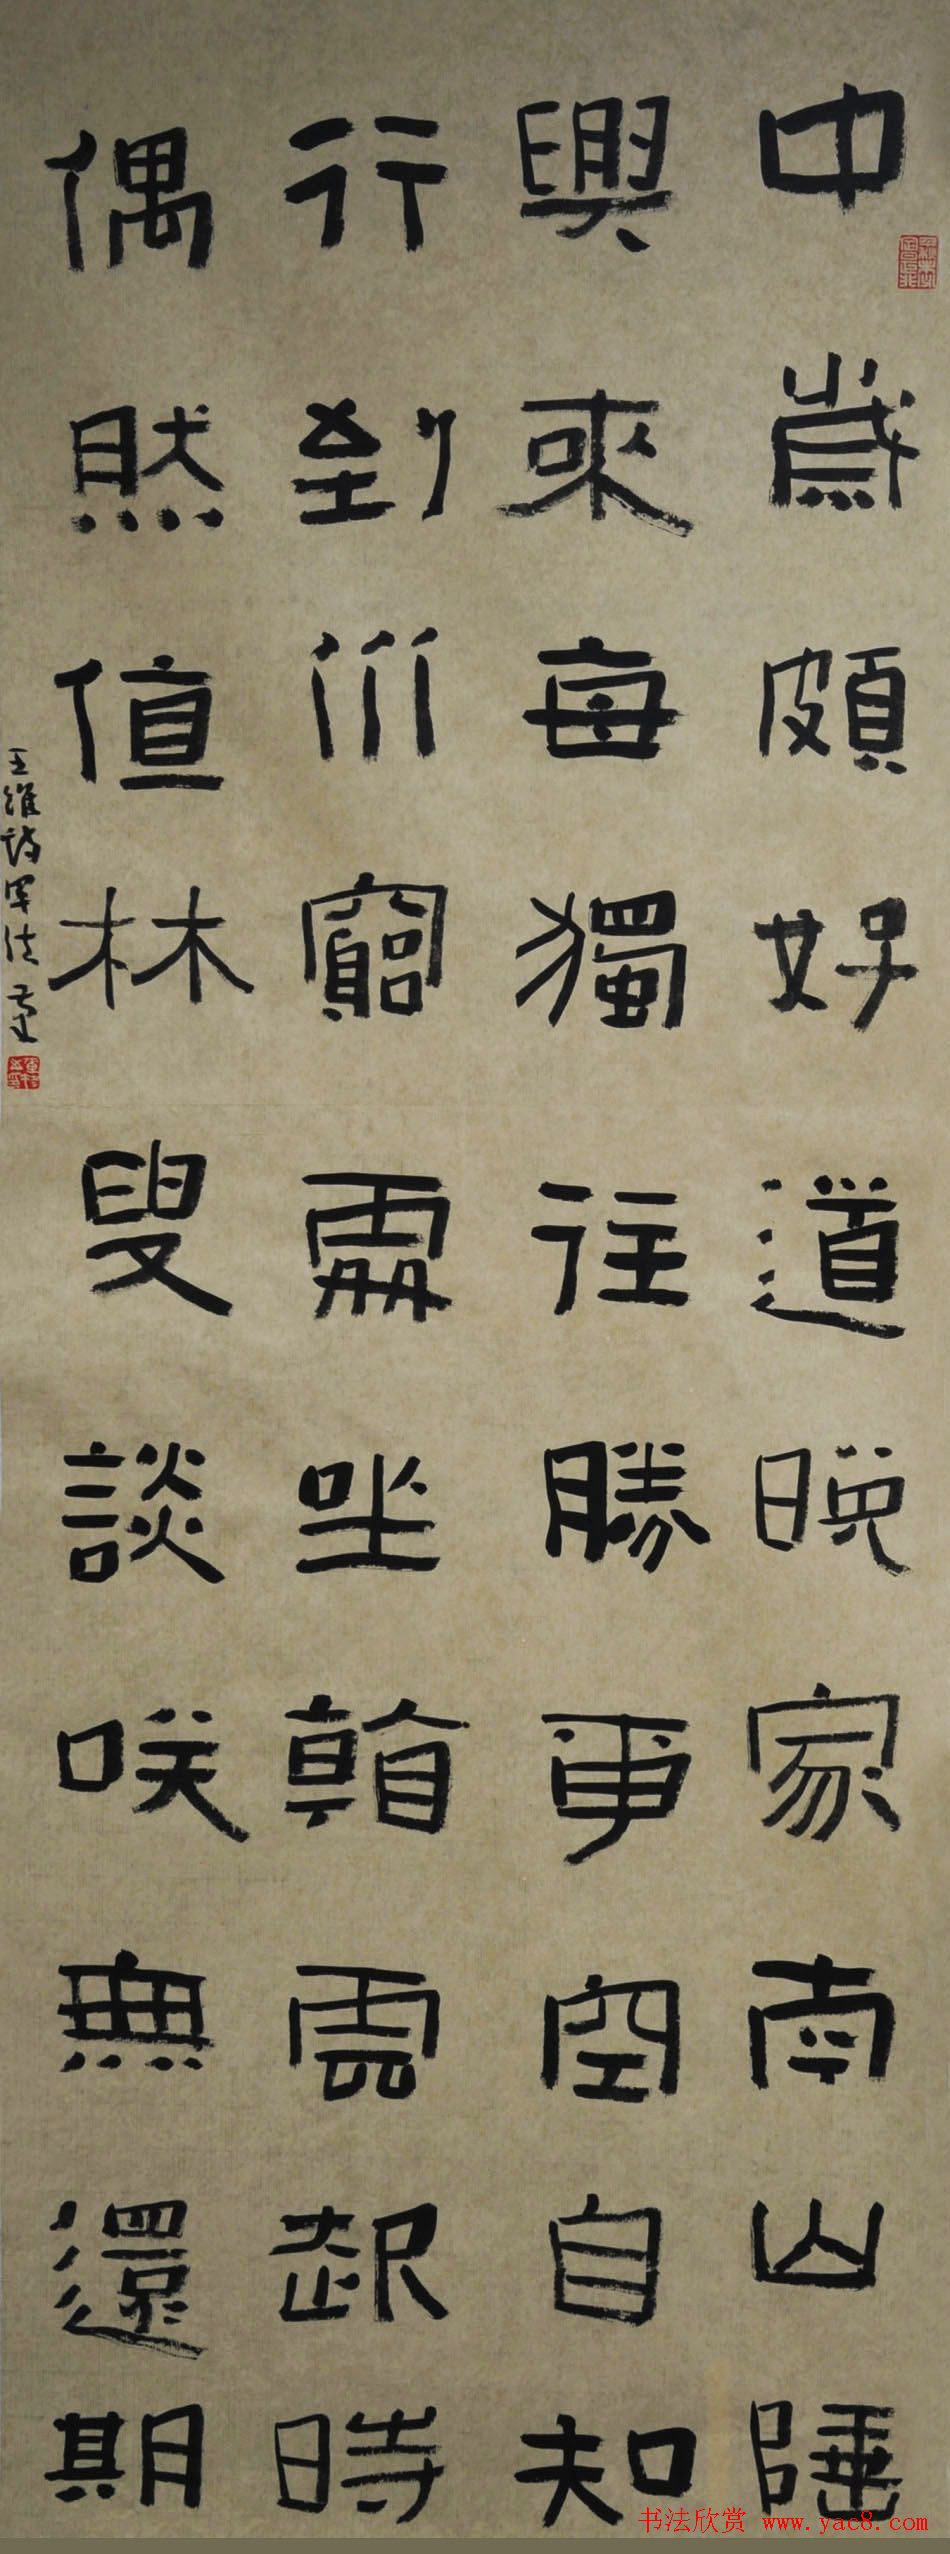 中歲頗好道晚家南山陲
興來每獨往勝事空自知
行到川窮處坐看雲起時
偶然值林叟談咲無還期
王維詩
书法欣赏 www.yac8.com